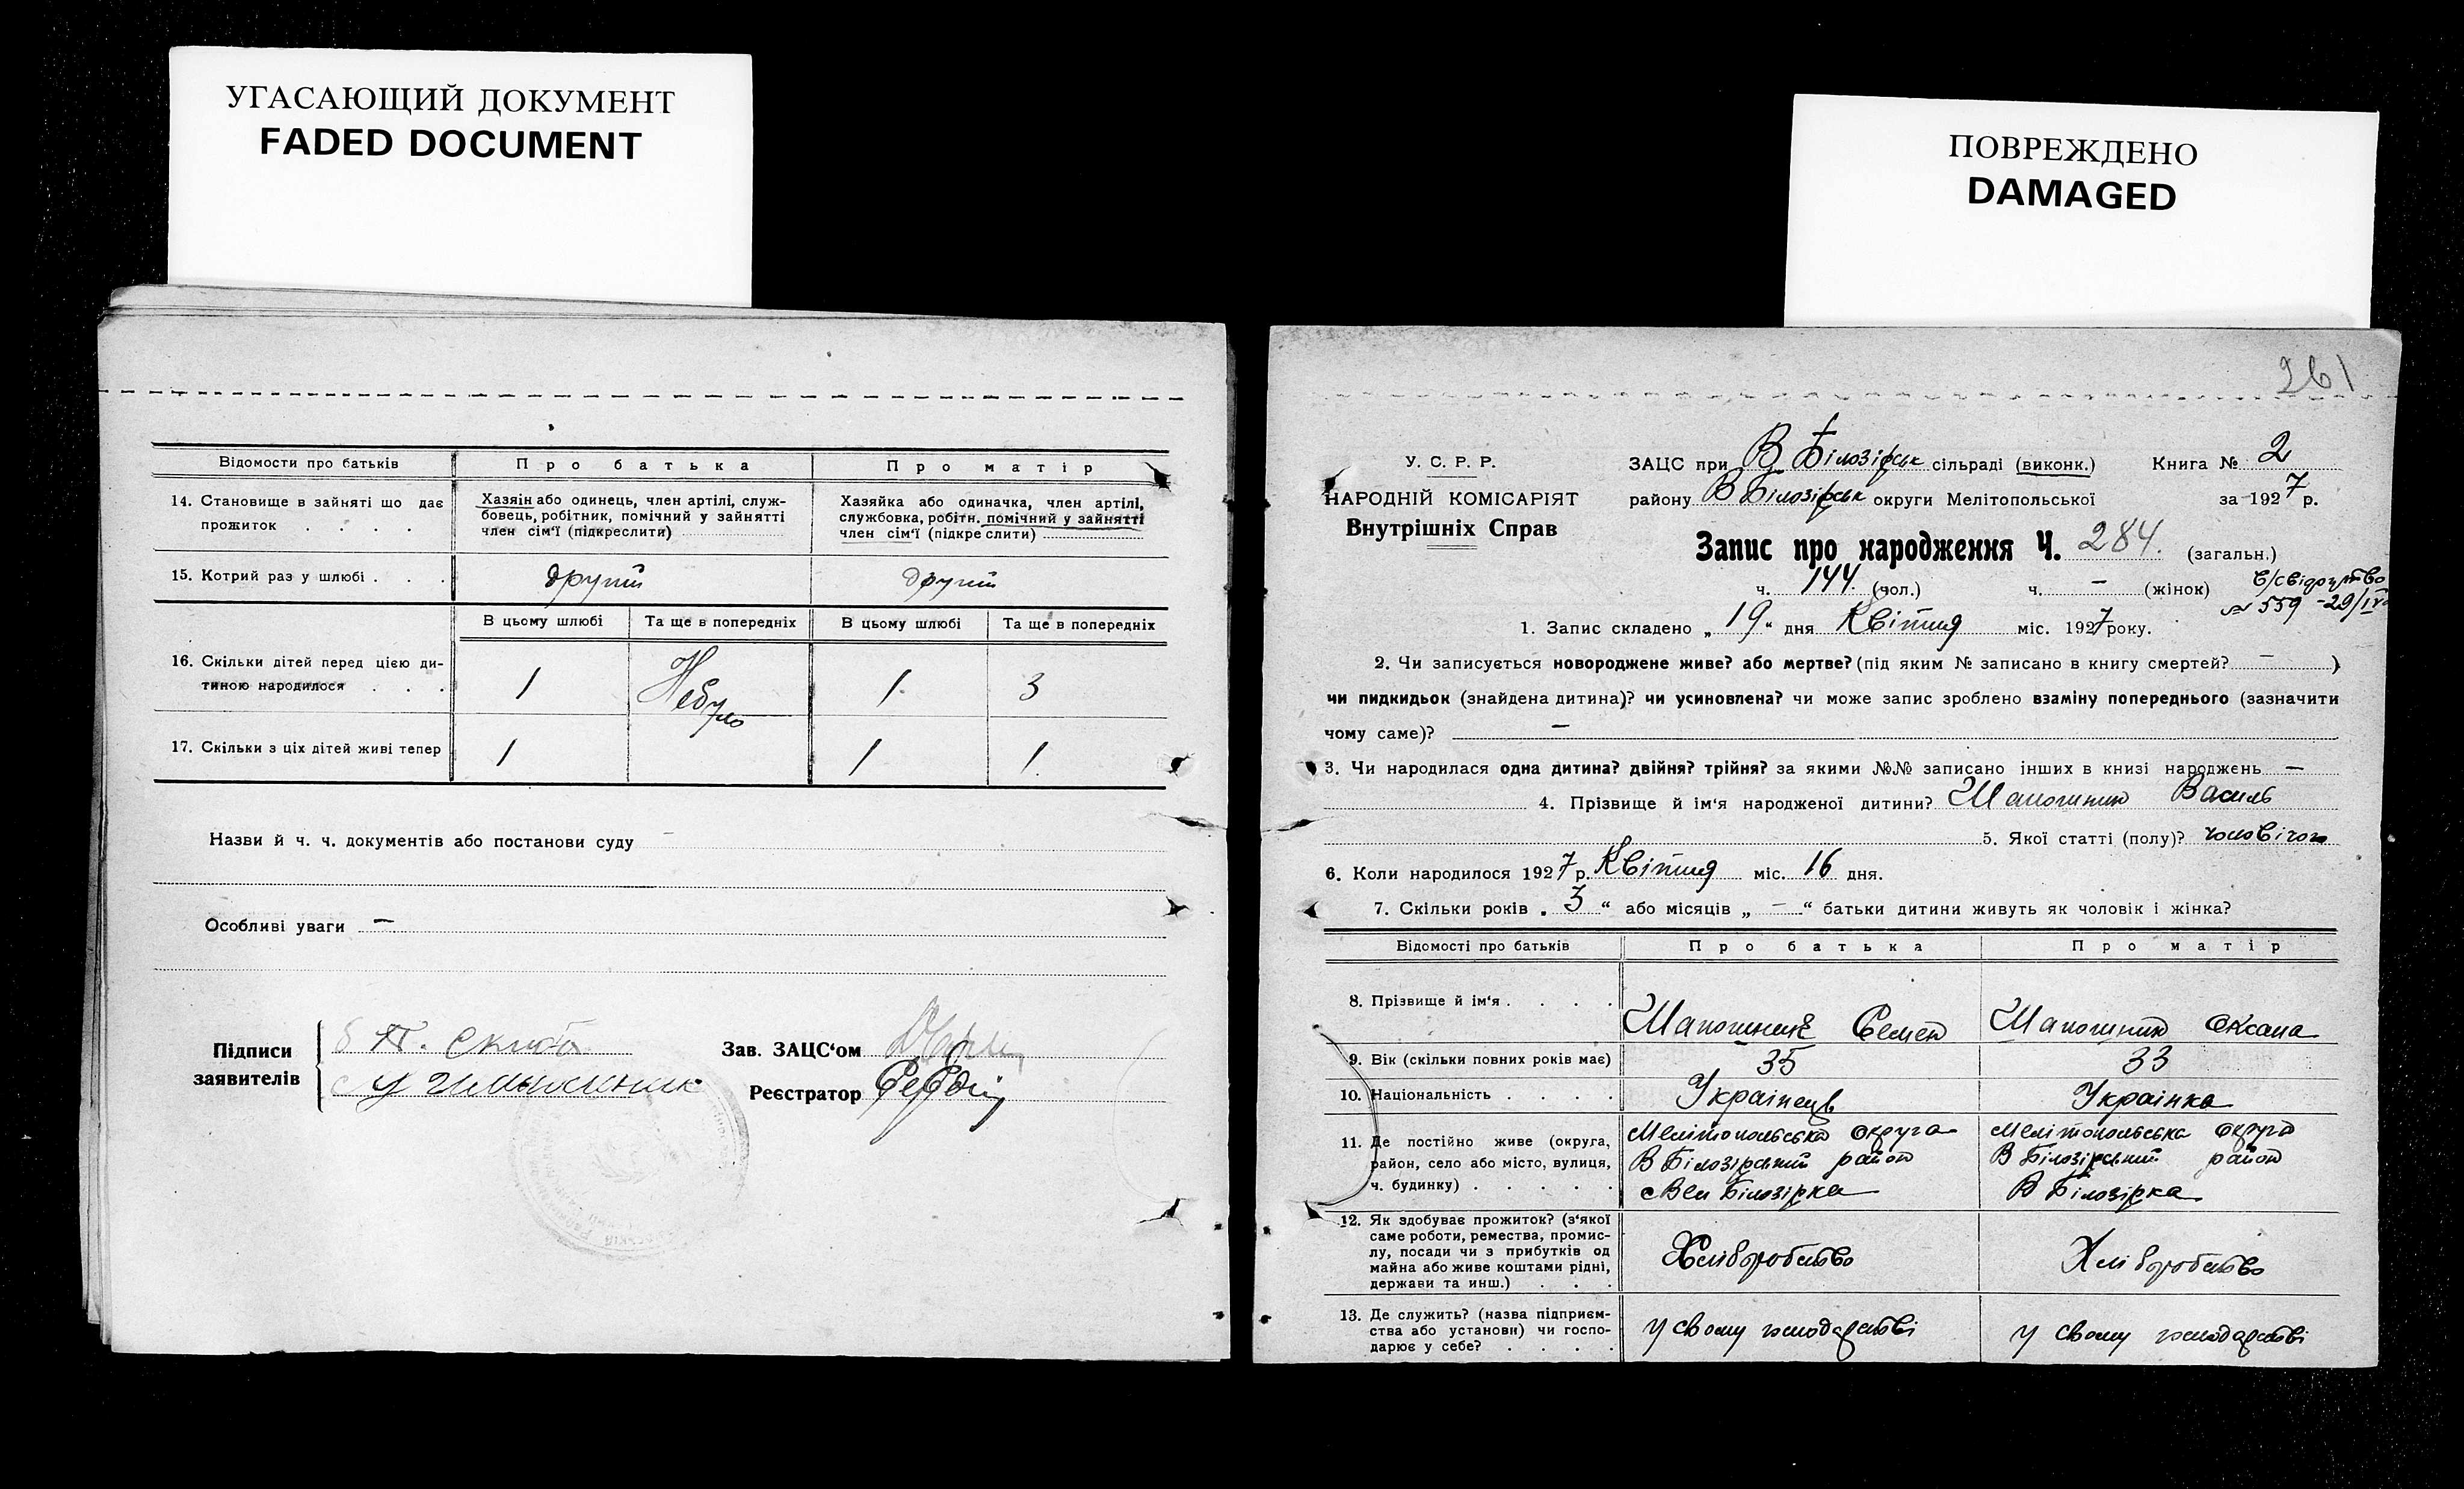 УГАСАЮЩИЙ ДОКУМЕНТ
FADED DOCUMENT
ПОВРЕЖДЕНО
DAMAGED
Відомости про батьків Про батька Про матір
14. Становище в зайняті що дає
прожиток . . . .
Хазяін або одинець, член артілі, служ-
бовець, робітник, помічний у зайнятті
член сім'ї (підкреслити)
Хазяйка або одиначка, член артілі,
службовка, робітн. помічний у зайнятті
член сім'ї (підкреслити)
15. Котрий раз у шлюбі . . . другий другий
В цьому шлюбі Та ще в попередніх В цьому шлюбі Та ще в попередніх
16. Скільки дітей перед цією ди-
тиною народилося . . . 1 Небуло 1. 3
17. Скільки з ціх дітей живі тепер 1 1 1.
Назви й ч. ч. документів або постанови суду –
Особливі уваги –
Підписи
заявителів
Зав. ЗАЦС'ом
Реєстратор
261
У. С. Р. Р.
НАРОДНІЙ КОМІСАРІЯТ
Внутрішніх Справ
ЗАЦС при В Білозірськ сільраді (виконк.) Книга № 2
району В Білозірськ округи Мелітопольської за 1927 р.
Запис про народження Ч. 284. (загальн.)
ч. 144. (чол.) ч. – (жінок)
№ 559 -29/IV
1. Запис складено „19“ дня Квітня міс. 1927 року.
2. Чи записується новороджене живе? або мертве? (під яким № записано в книгу смертей? – )
чи пидкидьок (знайдена дитина)? чи усиновлена? чи може запис зроблено взаміну попереднього (зазначити
чому саме)? –
3. Чи народилася одна дитина? двійня? трійня? за якими №№ записано інших в книзі народжень –
4. Прізвище й ім'я народженої дитини? Шапошник Василь
5. Якої статті (полу)? чоловічої
6. Коли народилося 1927 р. Квітня міс. 16 дня.
7. Скільки років „3“ або місяців „–“ батьки дитини живуть як чоловік і жінка?
Відомості про батьків Про батька Про матір
8. Прізвище й ім'я . . . . Шапошник Семен Шапошник Оксана
9. Вік (скільки повних років має) 35 33
10. Національність . . . . Українець Українка
11. Де постійно живе (округа,
район, село або місто, вулиця,
ч. будинку) . . . . .
Мелітопольська округа
В Білозірський район
с Вел Білозірка
Мелітопольська округа
В Білозірський район
В Білозірка
12. Як здобуває прожиток? (з'якої
саме роботи, ремества, промис-
лу, посади чи з прибутків од
майна або живе коштами рідні,
держави та инш.) . . .
Хліборобство
Хліборобство
13. Де служить? (назва підприєм-
ства або установи) чи госпо-
дарює у себе? . . . .
у свому господарстві
у свому господарстві